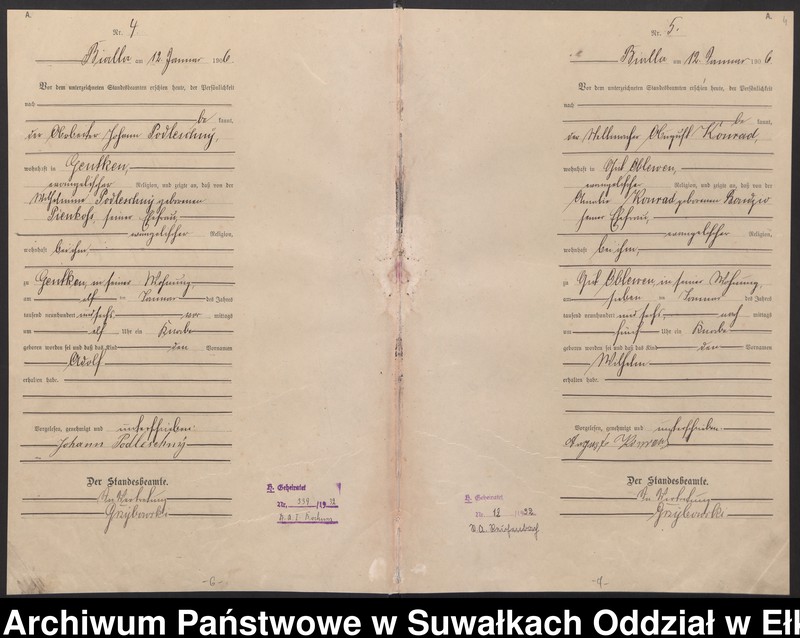 A.
Nr. 4
Bialla am 12 Januar 1906.
Vor dem unterzeichneten Standesbeamten erschien heute, der Persönlichkeit
nach
be kannt,
der Johann Podleschny,
wohnhaft in Gentken,
evangelischer Religion, und zeigte an, daß von der
Wilhelmine Podleschny geborenen
seiner Ehefrau,
evangelischer Religion,
wohnhaft bei ihm,
zu Gentken, in seiner Wohnung,
am elf ten Januar des Jahres
tausend neunhundert und sechs vor mittags
um elf Uhr ein Knabe
geboren worden sei und daß das Kind den Vornamen
Adolf
erhalten habe.
Vorgelesen, genehmigt und unterschrieben:
Johann Podleschny
Der Standesbeamte.
In Vertretung
Grzybowski
H. Geheiratet
Nr. 259 /1932
-6-
A.
4
Nr. 5.
Bialla am 12. Januar 1906.
Vor dem unterzeichneten Standesbeamten erschien heute, der Persönlichkeit
nach
be kannt,
der Stellmacher August Konrad,
wohnhaft in Gut Oblewen,
evangelischer Religion, und zeigte an, daß von der
Amalie Konrad geborenen
seiner Ehefrau,
evangelischer Religion,
wohnhaft bei ihm,
zu Gut Oblewen, in seiner Wohnung,
am sieben ten Januar des Jahres
tausend neunhundert und sechs nach mittags
um fünf Uhr ein Knabe
geboren worden sei und daß das Kind den Vornamen
Wilhelm
erhalten habe.
Vorgelesen, genehmigt und unterschrieben
August Konrad
Der Standesbeamte.
In Vertretung
Grzybowski
H. Geheiratet
Nr. 18 /1928
-7-
Archiwum Państwowe w Suwałkach Oddział w Eł